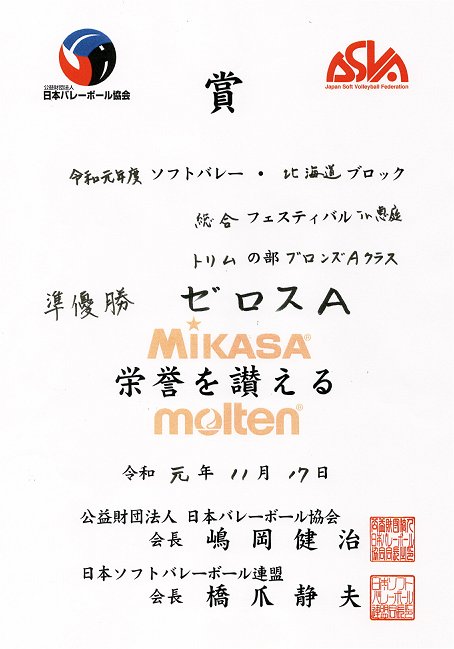 公益財団法人
日本バレーボール協会
JSVA
Japan Soft Volleyball Federation
賞
令和元年度 ソフトバレー・北海道ブロック
総合フェスティバル in 恵庭
トリムの部 ブロンズAクラス
準優勝 ゼロスA
MIKASA
栄誉を讃える
molten
令和 元年 11月 17日
公益財団法人 日本バレーボール協会
会長 嶋岡健治
日本ソフトバレーボール連盟
会長 橋爪静夫